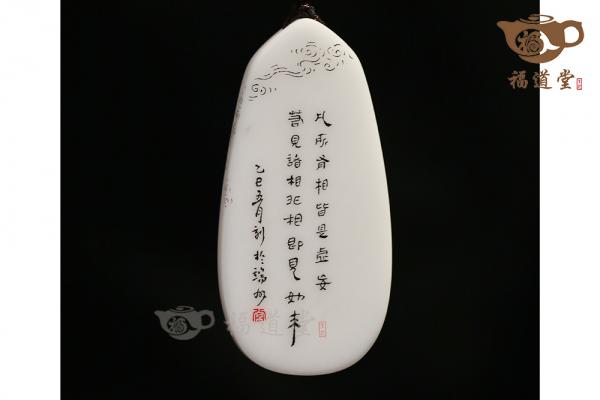 凡所有相皆是虛妄
若見諸相非相即見如來
乙巳五月刻於端州
福道堂
福道堂